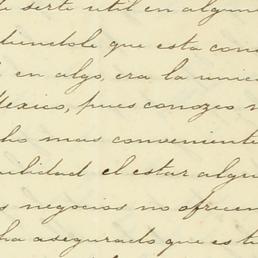 de serte util en algun
diciendole que esta con
en algo, era la unic
Mexico, pues conozco
ho mas conveniente
uilidad el estar algu
s negocios no ofrecen
ha asegurado que es t